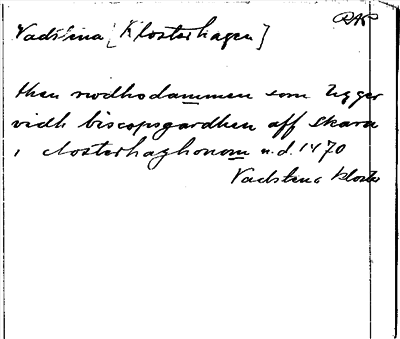 RAP
Vadstena [Klosterhagen]
then rwdhodammen som ligger
vidh biscopsgardhen aff Skara
i closterhaghonom n.d. 1470
Vadstena kloster